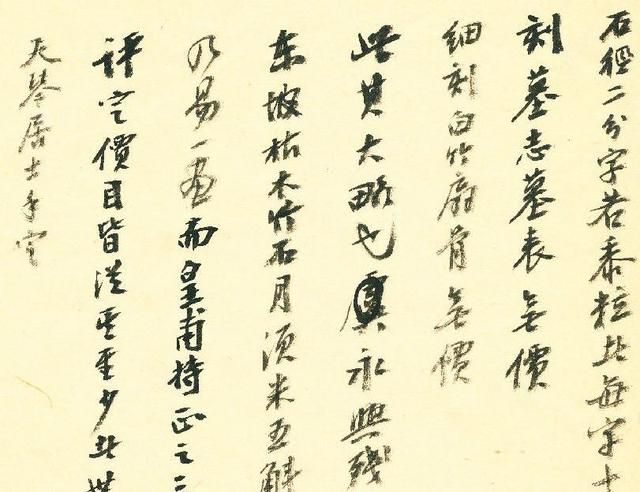 石徑二分字若黍粒比每字十
刻墓志墓表無價
細刻白竹扇骨無價
此其大略也虞永興殘
東坡枯木竹石月須米五斛
乃易一畫而皇甫持正之二
評定價目皆從至少此
居士手定